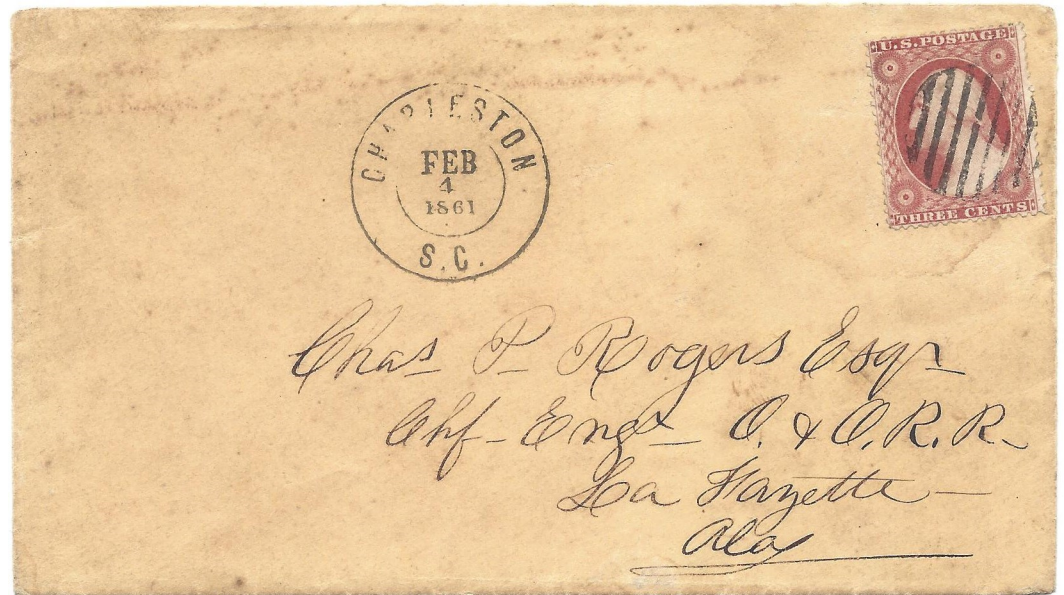 CHARLESTON
FEB
4
1861
S.C.
U.S. POSTAGE
THREE CENTS
Chas P Rogers Esqr
Chf Engr O. & O. R. R.
La Fayette
Ala